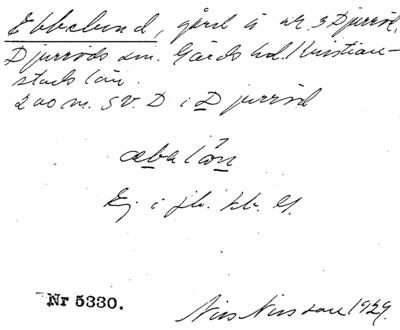 Ebbelund, gård å nr. 3 Djurröd,
Djurröds sn. Gärds hd. Kristian-
stads län.
200 m. SV. D i Djurröd
Ej i jb. kb. 
Nr 5330.
Nils Nilsson 1929.